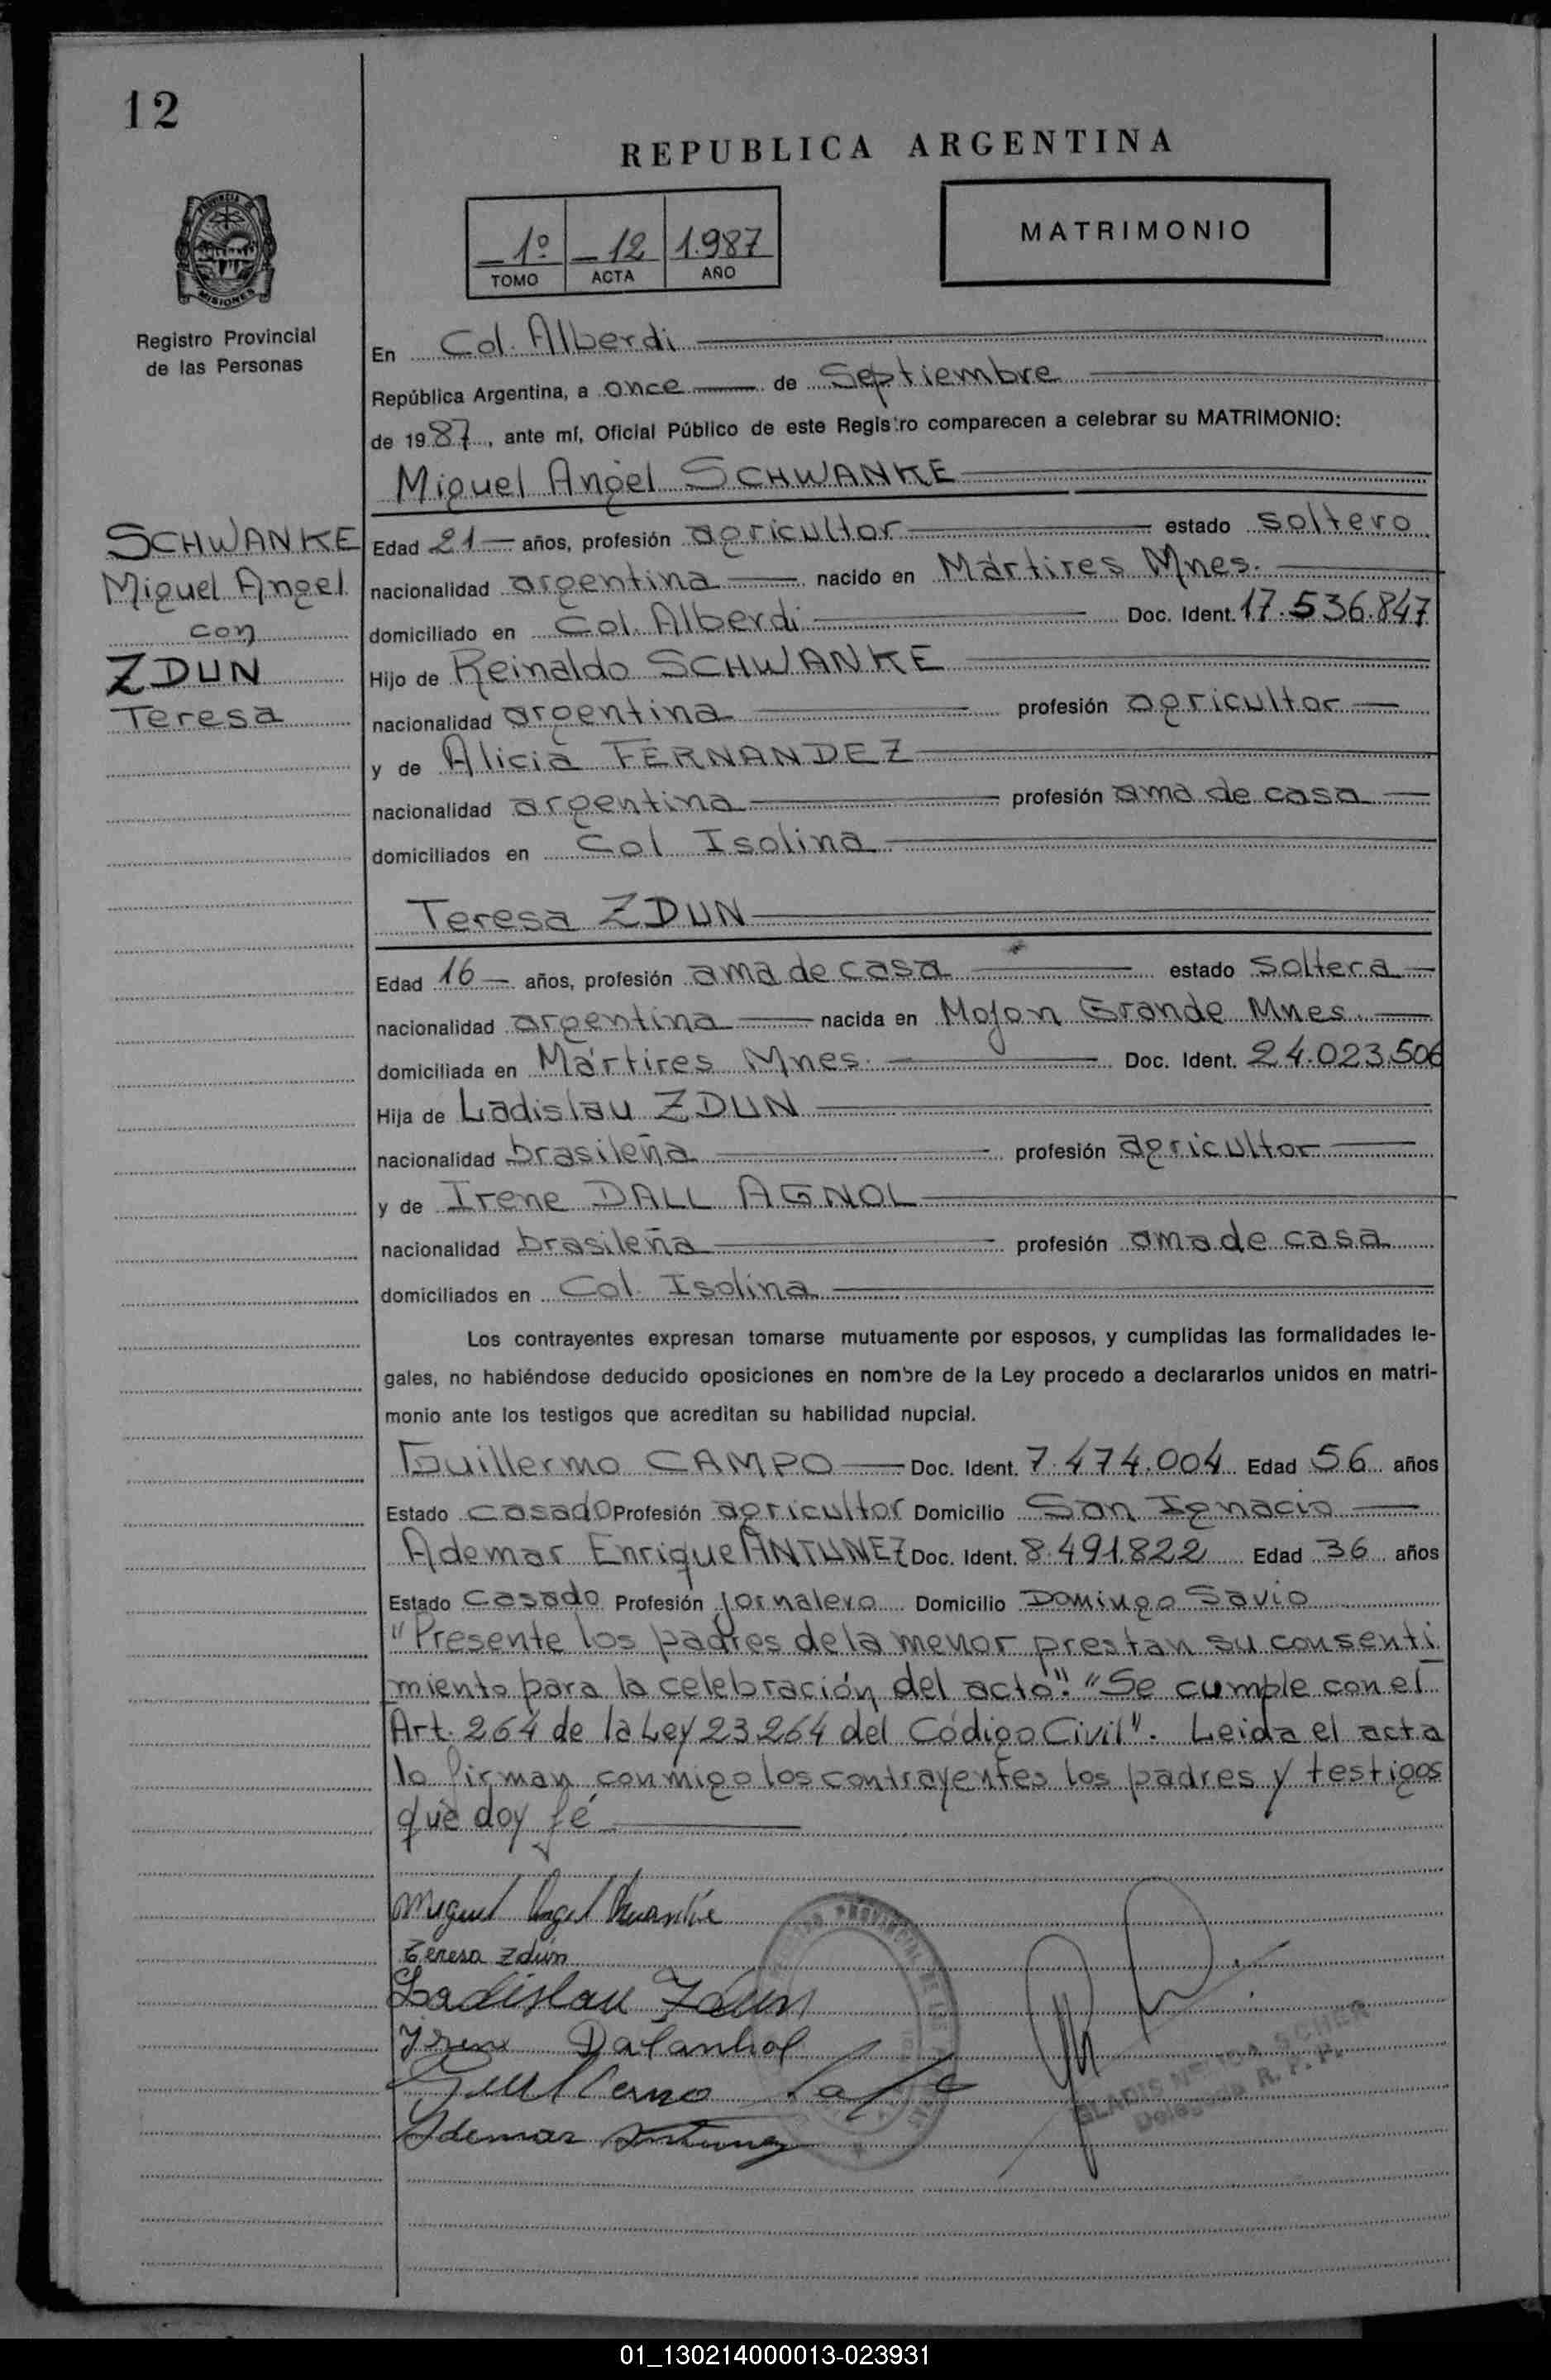 12
REPUBLICA ARGENTINA
1º 12 1.987
TOMO ACTA AÑO
MATRIMONIO
PROVINCIA DE MISIONES
Registro Provincial
de las Personas
SCHWANKE
Miguel Angel
con
ZDUN
Teresa
En Col. Alberdi
República Argentina, a once de Septiembre
de 1987, ante mí, Oficial Público de este Registro comparecen a celebrar su MATRIMONIO:
Miguel Angel SCHWANKE
Edad 21 años, profesión agricultor estado soltero
nacionalidad argentina nacido en Mártires Mnes.
domiciliado en Col. Alberdi Doc. Ident. 17.536.847
Hijo de Reinaldo SCHWANKE
nacionalidad argentina profesión agricultor
y de Alicia FERNANDEZ
nacionalidad argentina profesión ama de casa
domiciliados en Col Isolina
Teresa ZDUN
Edad 16 años, profesión ama de casa estado soltera
nacionalidad argentina nacida en Mojon Grande Mnes.
domiciliada en Mártires Mnes. Doc. Ident. 24.023.506
Hija de Ladislau ZDUN
nacionalidad brasileña profesión agricultor
y de Irene DALL AGNOL
nacionalidad brasileña profesión ama de casa
domiciliados en Col. Isolina
Los contrayentes expresan tomarse mutuamente por esposos, y cumplidas las formalidades le-
gales, no habiéndose deducido oposiciones en nombre de la Ley procedo a declararlos unidos en matri-
monio ante los testigos que acreditan su habilidad nupcial.
Guillermo CAMPO Doc. Ident. 7.474.004 Edad 56 años
Estado casado Profesión agricultor Domicilio San Ignacio
Ademar Enrique ANTUNEZ Doc. Ident. 8.491.822 Edad 36 años
Estado casado Profesión jornalero Domicilio Domingo Savio
"Presente los padres de la menor prestan su consenti
miento para la celebración del acto". "Se cumple con el
Art. 264 de la Ley 23264 del Código Civil". Leida el acta
la firman conmigo los contrayentes los padres y testigos
que doy fé
Miguel Angel
Teresa Zdun
Ladislau Zdun
Irene Dalanhol
Guillermo
Ademar Antunez
REGISTRO PROVINCIAL DE LAS
GLADIS SCHER
Delegada R. P. P.
01_130214000013-023931